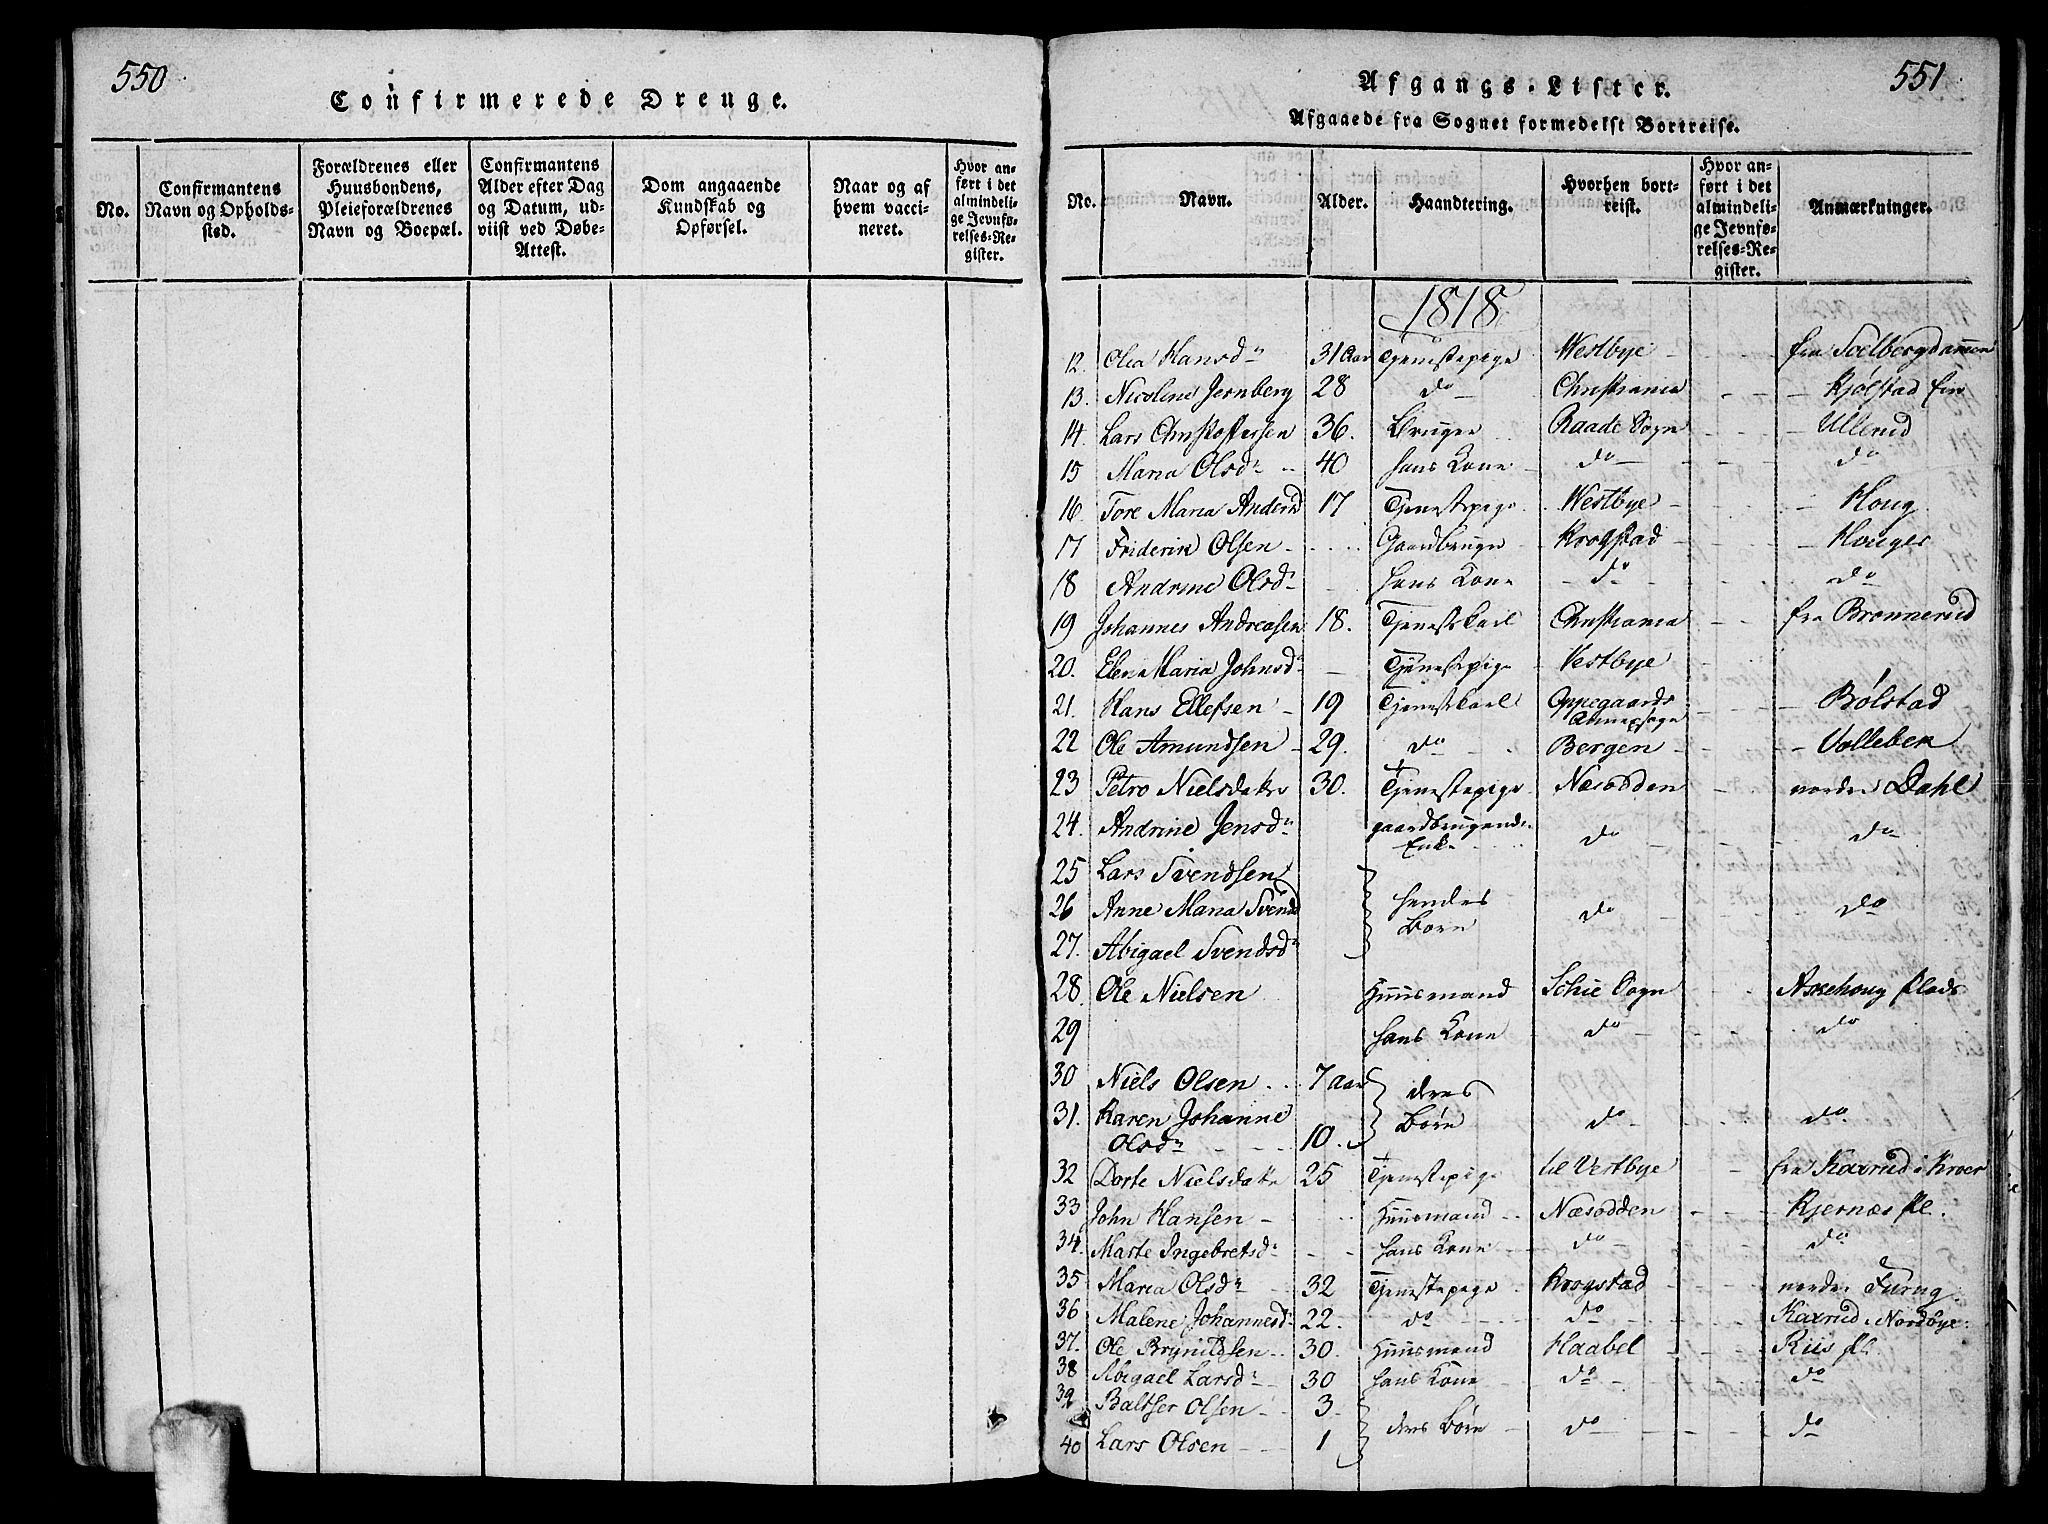 550
Confirmerede Drenge.
No.
Confirmantens Navn og Opholds-sted.
Forældrenes eller Huusbondens, Pleieforældrenes Navn og Boepæl.
Confirmantens Alder efter Dag og Datum, ud-viist ved Døbe-Attest.
Dom angaaende Kundskab og Opførsel.
Naar og af hvem vacci-neret.
Hvor an-ført i det almindeli-ge Jevnfø-relses-Re-gister.
551
Afgangs-Lister.
Afgaaede fra Sognet formedelst Bortreise.
No.
Navn.
Alder.
Haandtering.
Hvorhen bort-reist.
Hvor an-ført i det almindeli-ge Jevnfø-relses-Re-gister.
Anmærkninger.
1818
12. Olea Hansdr 31 Aar Tjenestepige Westbye fra Soelbergdammen
13. Nicoline Jernberg 28 do Christiania Kjølstad
14. Lars Christophersen 36. Bruger Raade Sogn Ullerud
15 Maria Olsdr 40 hans Kone do do
16. Tore Maria Andersd 17 Tjenestepige Westbye Houg
17 Friderik Olsen Gaardbruger Krogstad Houger
18 Andrine Olsdr hans Kone do do
19 Johannes Andreasen 18. Tjenestkarl Christiania fra Brønnerud
20. Elen Maria Johnsdr Tjenestepige Vestbye
21. Hans Ellefsen 19 Tjenestkarl Oppegaards Annexsogn Bølstad
22 Ole Amundsen 29. do Bergen Volleben
23 Petro Nielsdatter 30. Tjenestepige Næsodden nordre Dahl
24. Andrine Jensdr gaardbrugende Enke do do
25 Lars Svendsen
26 Anne Maria Svends hendes Børn do do
27. Abigael Svendsdr
28. Ole Nielsen Huusmand Schie Sogn Askehoug Plads
29 hans Kone do do
30 Niels Olsen 7 Aar deres
31. Karen Johanne Børn do do
Olsdr 10.
32 Dorte Nielsdatter 25 Tjenestepige til Vestbye fra Kaxrud i Kroer
33 John Hansen Huusmand Næsodden Kjernæs pl.
34. Marte Ingebretsdr hans Kone do do
35 Maria Olsdr 32 Tjenestepige Krogstad nordre Furug
36 Malene Johannesdr 22. do do Kaxrud Nordbye.
37. Ole Brynildsen 30. Huusmand Haabel Riis pl.
38 Abigael Larsdr 30 hans Kone do do
39. Baltser Olsen 3. deres Børn do do
40 Lars Olsen 1